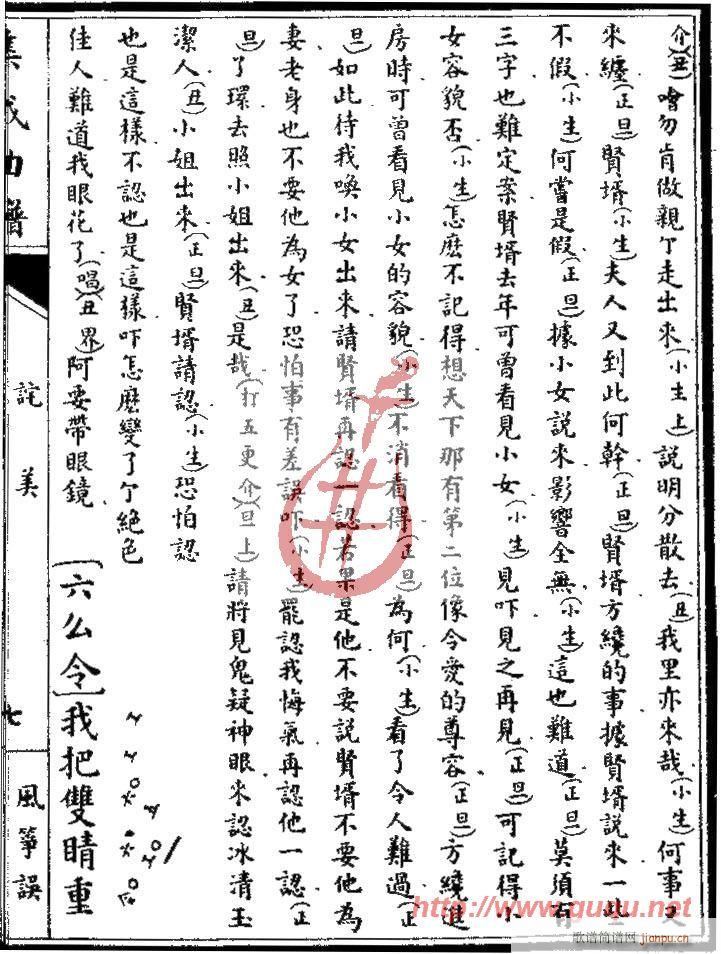 介(丑)噲勿肯做親亇走出來(小生上)說明分散去(丑)我里亦來哉(小生)何事又
來纏(正旦)賢壻(小生)夫人又到此何幹(正旦)賢壻方纔的事據賢壻說來一些
不假(小生)何嘗是假(正旦)據小女說來影響全無(小生)這也難道(正旦)莫須有
三字也難定案賢壻去年可曾看見小女(小生)見吓見之再見(正旦)可記得小
女容貌否(小生)怎麽不記得想天下那有第二位像令愛的尊容(正旦)方纔進
房時可曾看見小女的容貌(小生)不消看得(正旦)為何(小生)看了令人難過(正
旦)如此待我喚小女出來請賢壻再認一認若果是他不要說賢壻不要他為
妻老身也不要他為女了恐怕事有差誤吓(小生)罷認我悔氣再認他一認(正
旦)了環去照小姐出來(丑)是哉(打五更介)(旦上)請將見鬼疑神眼來認冰清玉
潔人(丑)小姐出來(正旦)賢壻請認(小生)恐怕認
也是這樣不認也是這樣吓怎麽變了亇絕色
佳人難道我眼花了(唱)(丑界)阿要帶眼鏡
[六么令]我把雙睛重
集成曲譜
詫美
七
風箏誤
http://www.ququ.net
歌谱简谱网
jianpu.cn